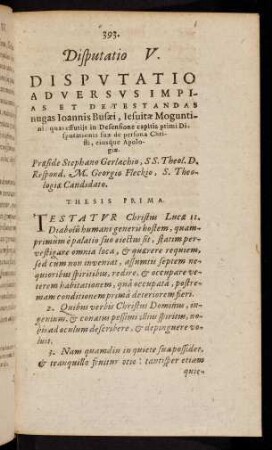 393.
Disputatio V.
DISPVTATIO
ADVERSVS IMPI-
AS ET DETESTANDAS
nugas Ioannis Busæi, Iesuitæ Mogunti-
ni: quas effutijt in Defensione capitis primi Di-
sputationis suæ de persona Chri-
sti, eiusque Apolo-
giæ.
Præside Stephano Gerlachio, SS. Theol. D.
Respond. M. Georgio Fleckio, S. Theo-
logiæ Candidato.
THESIS PRIMA.
TESTATVR Christus Lucæ 11.
Diabolũ humani generis hostem, quam-
primum è palatio suo eiectus sit, statim per-
vestigare omnia loca, & quærere requiem,
sed cum non inveniat, assumtis septem ne-
quioribus spiritibus, redire, & occupare ve-
terem habitationem, quâ occupatâ, postre-
mam conditionem primâ deteriorem fieri.
2. Quibus verbis Christus Dominus, in-
genium, & conatus pessimi illius spiritus, no-
bis ad oculum describere, & depingere vo-
luit.
3. Nam quamdiu in quiete sua possidet,
& tranquillè fruitur otio: tantisper etiam
quie-